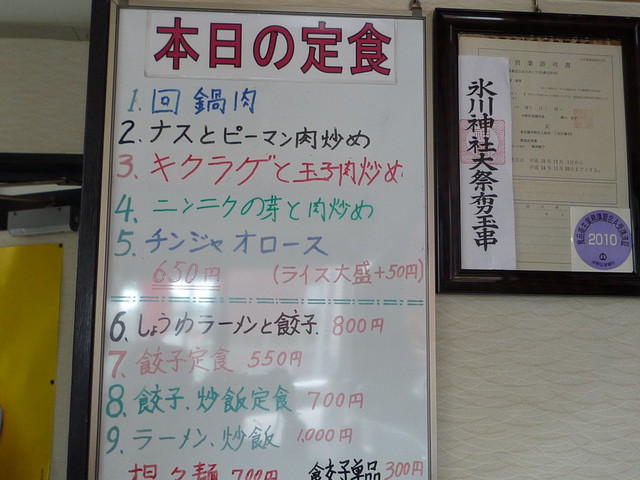 本日の定食
1. 回鍋肉
2. ナスとピーマン肉炒め
3. キクラゲと玉子肉炒め
4. ニンニクの芽と肉炒め
5. チンジャオロース
650円 (ライス大盛+50円)
6. しょうゆラーメンと餃子 800円
7. 餃子定食 550円
8. 餃子、炒飯定食 700円
9. ラーメン、炒飯 1,000円
担々麺 700円 餃子単品 300円
営業許可書
氷川神社大祭布玉串
2010